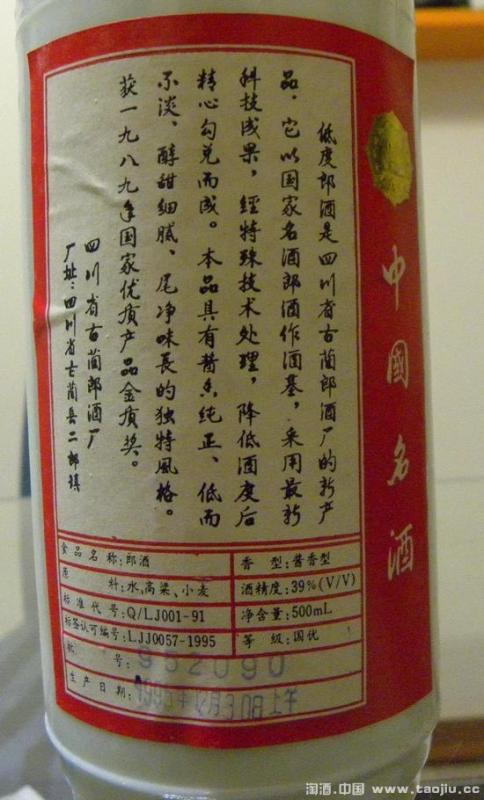 低度郎酒是四川省古蔺郎酒厂的新产
品，它以国家名酒郎酒作酒基，采用最新
科技成果，经特殊技术处理，降低酒度后
精心勾兑而成。本品具有酱香纯正、低而
不淡、醇甜细腻、尾净味長的独特風格。
获一九八九年国家优质产品金质奖。
四川省古蔺郎酒厂
厂址：四川省古蔺县二郎镇
中國名酒
食品名称:郎酒
香型:酱香型
原料:水、高粱、小麦
酒精度:39%(V/V)
标准代号:Q/LJ001-91
净含量:500mL
标签认可编号:LJJ0057-1995
等级:国优
批号:952090
生产日期:1995年12月30日上午
淘酒.中国 www.taojiu.cc